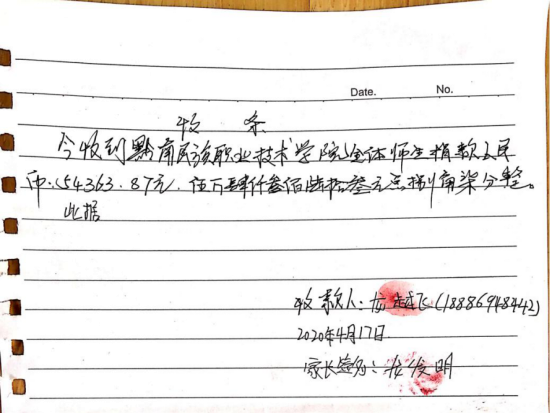 Date. No.
收 条
今收到黔南民族职业技术学院全体师生捐款人民
币.(54363.87元.伍万肆仟叁佰陆拾叁元点捌角柒分整。
此据
收款人:龙越飞(18886948442)
2020年4月17日.
家长签名:龙发明